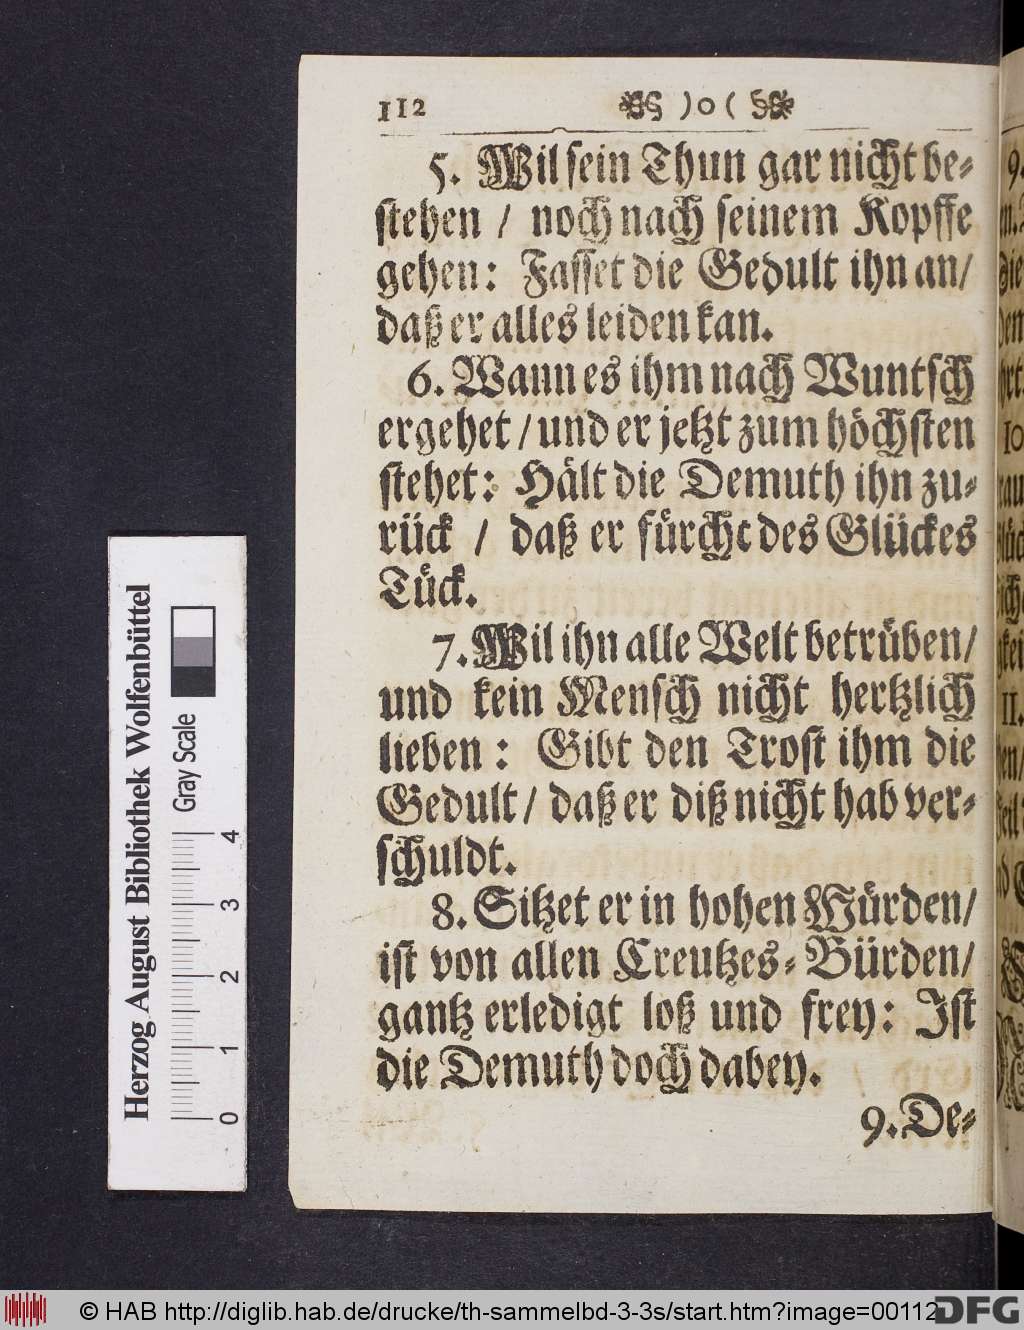 112 )o(
5. Wil sein Thun gar nicht be-
stehen / noch nach seinem Kopffe
gehen: Fasset die Gedult ihn an/
daß er alles leiden kan.
6. Wann es ihm nach Wuntsch
ergehet / und er jetzt zum höchsten
stehet: Hält die Demuth ihn zu-
rück / daß er fürcht des Glückes
Tück.
7. Wil ihn alle Welt betrüben/
und kein Mensch nicht hertzlich
lieben: Gibt den Trost ihm die
Gedult / daß er diß nicht hab ver-
schuldt.
8. Sitzet er in hohen Würden/
ist von allen Creutzes-Bürden/
gantz erledigt loß und frey: Ist
die Demuth doch dabey.
9. De-
Herzog August Bibliothek Wolfenbüttel
Gray Scale
0 1 2 3 4
© HAB http://diglib.hab.de/drucke/th-sammelbd-3-3s/start.htm?image=00112
DFG